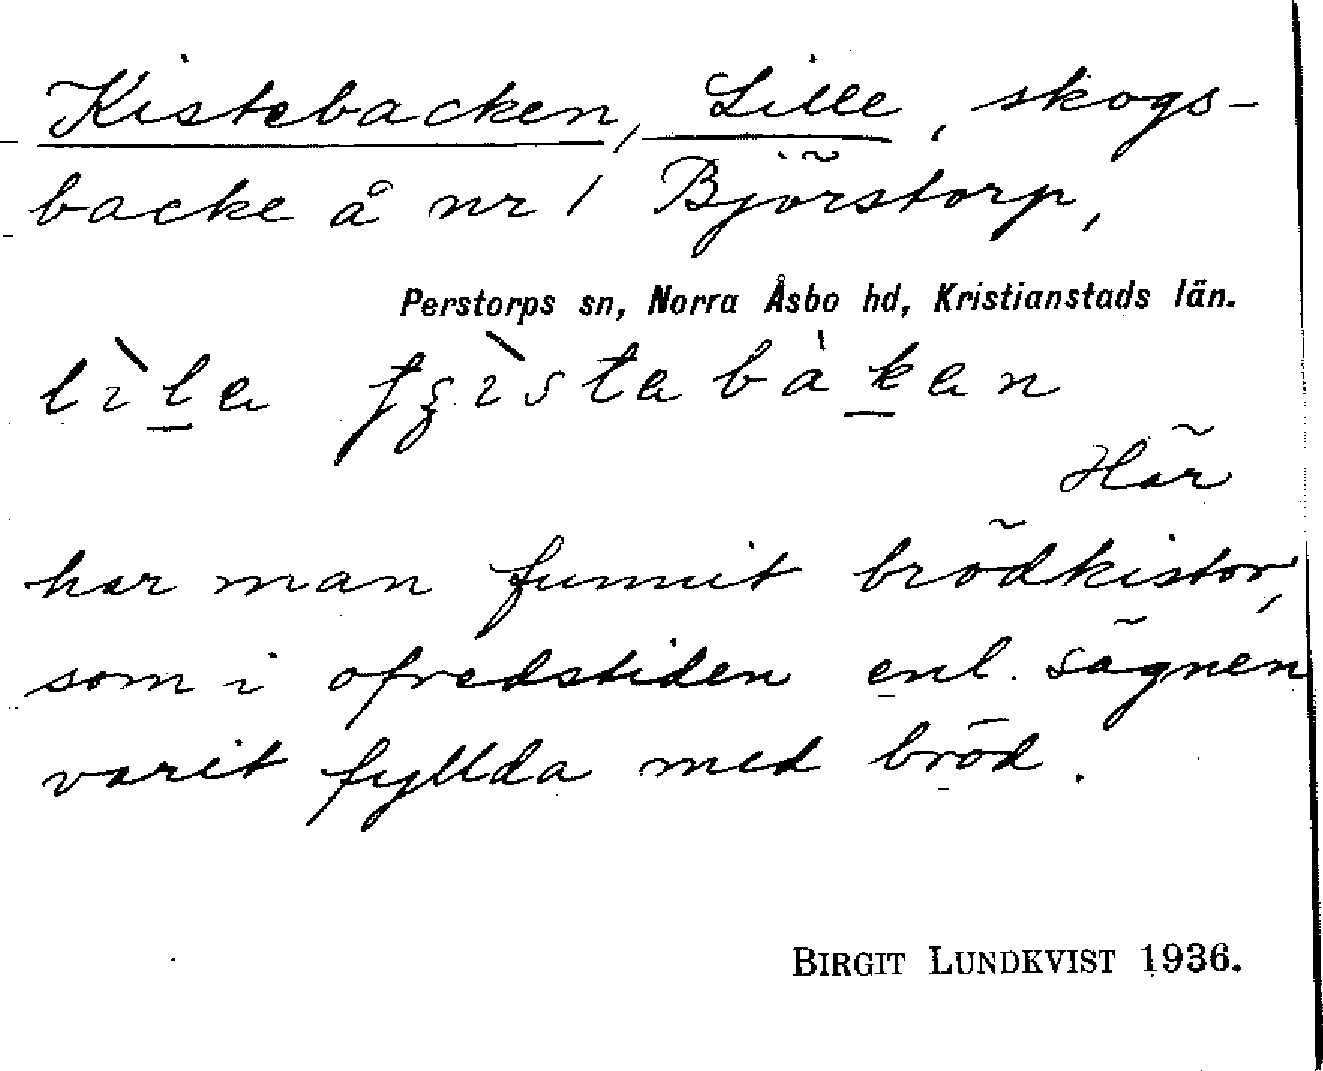 Kistebacken, Lille, skogs-
backe å nr 1 Björstorp,
Perstorps sn, Norra Åsbo hd, Kristianstads län.
Här
har man funnit brödkistor,
som i ofredstiden enl. sägnen
varit fyllda med bröd.
BIRGIT LUNDKVIST 1936.